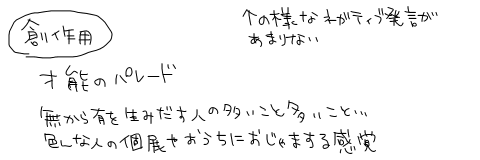 創作用
↑の様なネガティブ発言が
あまりない
才能のパレード
無から有を生みだす人の多いこと多いこと…
色んな人の個展やおうちにおじゃまする感覚